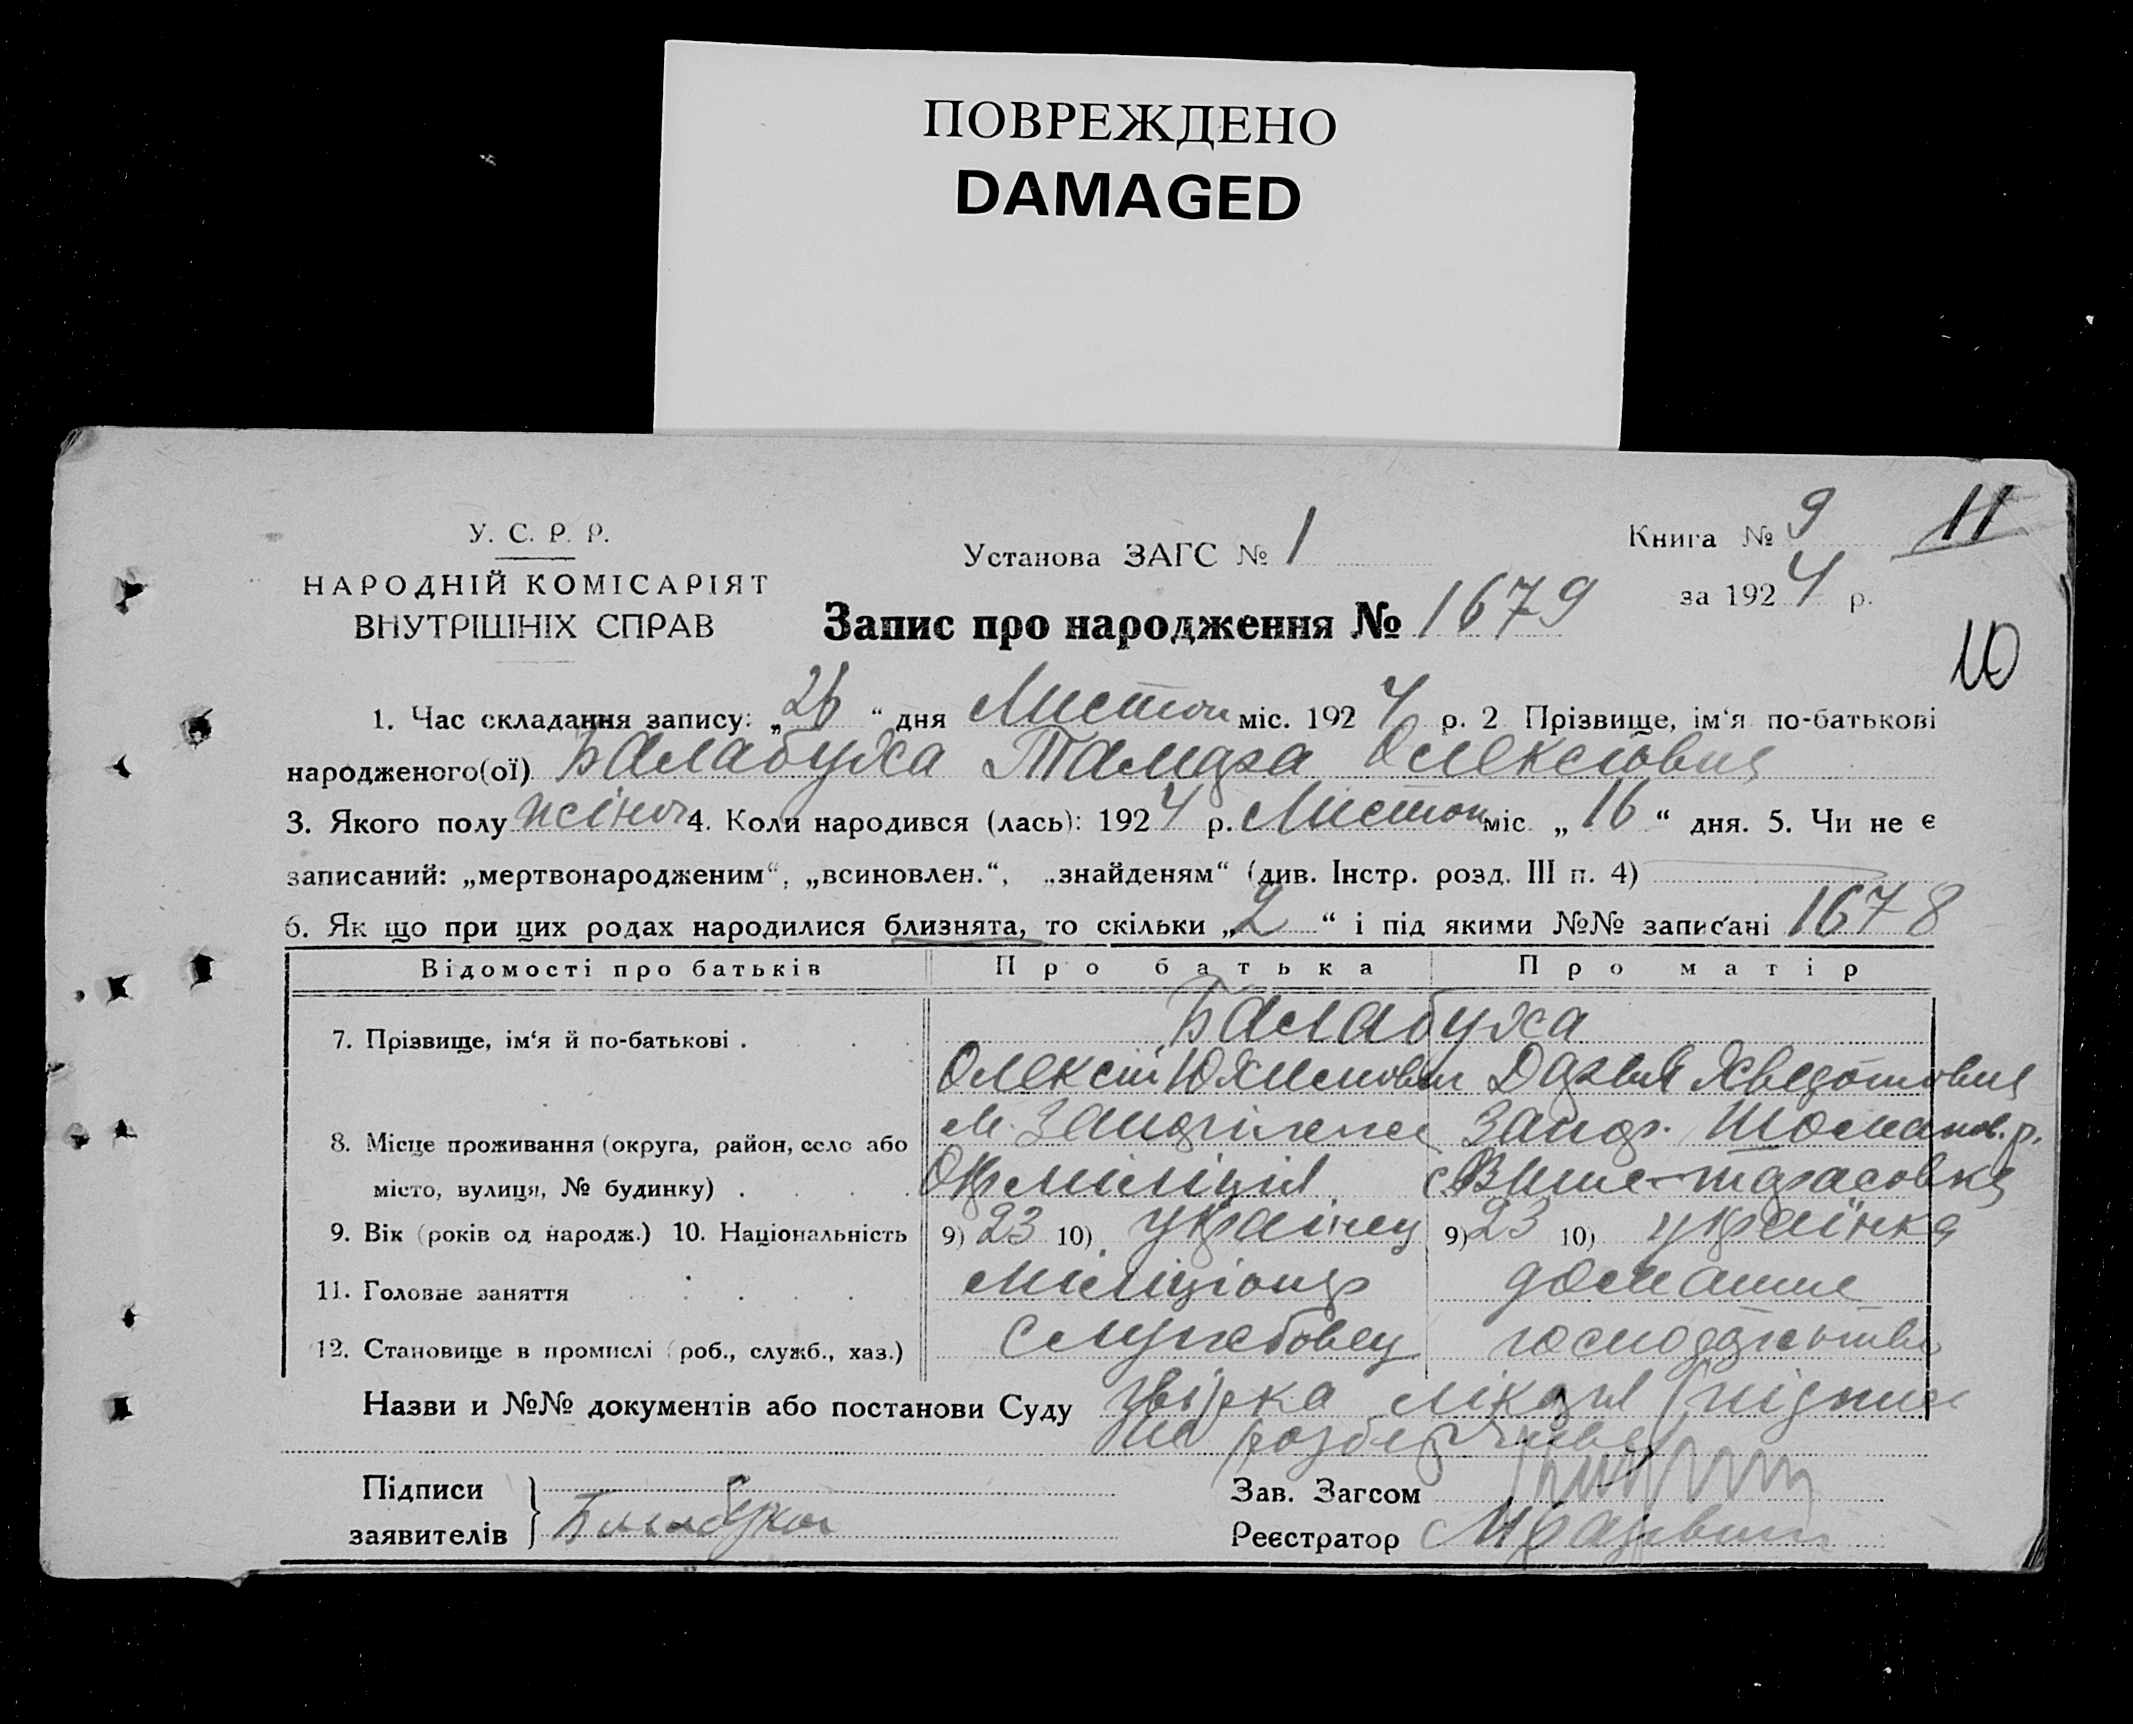 ПОВРЕЖДЕНО
DAMAGED
У. С. Р. Р.
НАРОДНІЙ КОМІСАРІЯТ
ВНУТРІШНІХ СПРАВ
Установа ЗАГС № 1
Книга № 9
11
за 1924 р.
Запис про народження № 1679
10
1. Час складання запису: „26“ дня Листоп міс. 1924 р. 2 Прізвище, ім'я по-батькові
народженого(ої) Балабуха Тамара Олексіовна
3. Якого полу жіноч 4. Коли народився (лась): 1924 р. Листоп міс. „16“ дня. 5. Чи не є
записаний: „мертвонародженим“, „всиновлен.“, „знайденям“ (див. Інстр. розд. III п. 4)
6. Як що при цих родах народилися близнята, то скільки „2“ і під якими №№ записані 1678
Відомості про батьків Про батька Про матір
7. Прізвище, ім'я й по-батькові . Балабуха
Олексій Юхимович Дарья Хведотовна
8. Місце проживання (округа, район, село або м. Запоріжжє Запор. Томаков. р.
місто, вулиця, № будинку) . Окрміліція с. Више-тарасовка
9. Вік (років од народж.) 10. Національність 9) 23 10) українец 9) 23 10) українка
11. Головне заняття міліціонер домашнє
12. Становище в промислі (роб., служб., хаз.) службовец господарство
Назви и №№ документів або постанови Суду лікаря (підпис
не
Підписи
заявителів Балабуха
Зав. Загсом
Реєстратор